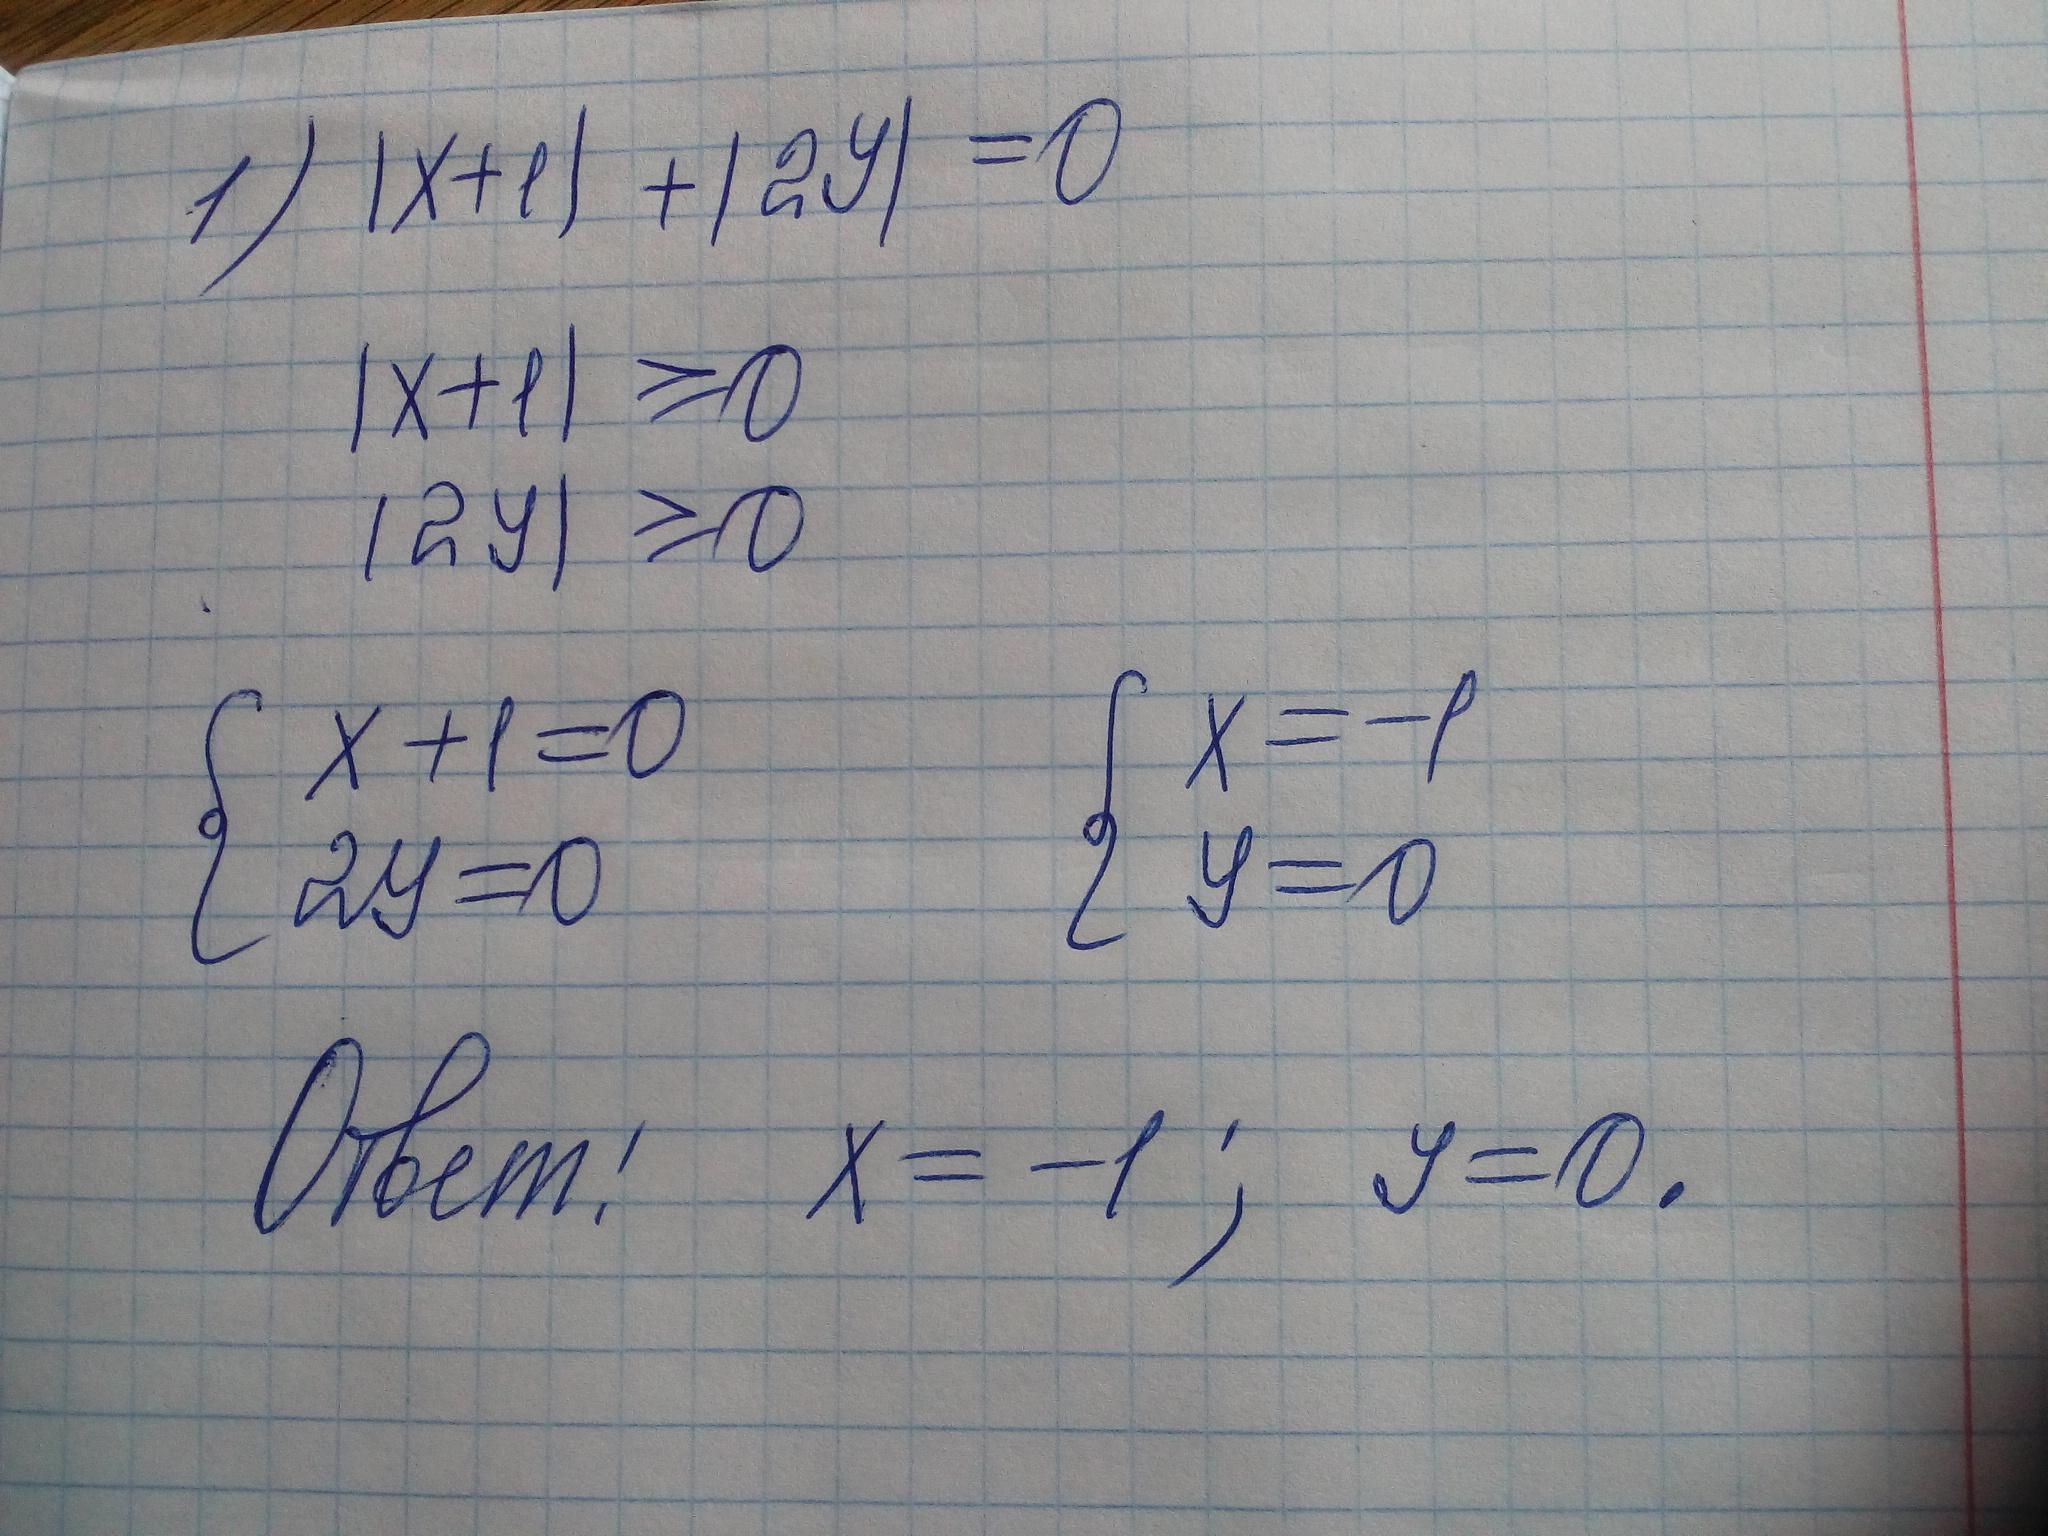 1) |x+1| + |2y| = 0
|x+1| ⩾ 0
|2y| ⩾ 0
{ x+1=0 { x=-1
2y=0 y=0
Ответ: x = -1; y=0.